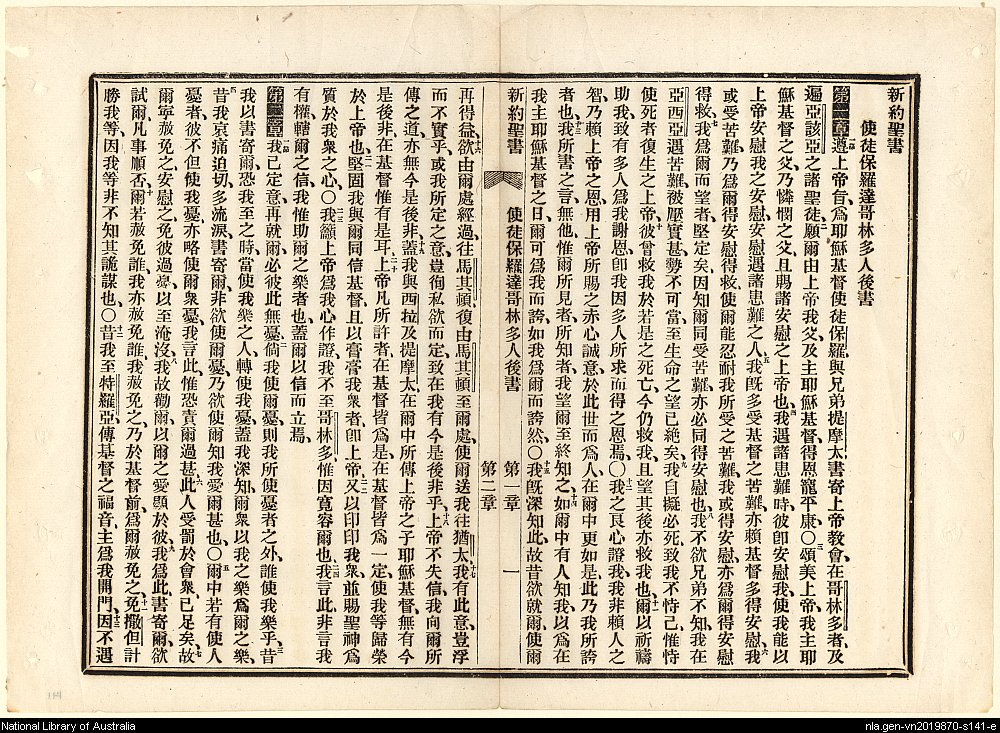 新約聖書
使徒保羅達哥林多人後書
第一章 一節 遵上帝旨、爲耶穌基督使徒保羅、與兄弟提摩太、書寄上帝教會在哥林多者、及
遍亞該亞之諸聖徒、二願爾由上帝我父、及主耶穌基督、得恩寵平康〇三頌美上帝、我主耶
穌基督之父、乃憐憫之父、且賜諸安慰之上帝也、四我遇諸患難時、彼卽安慰我、使我能以
上帝安慰我之安慰、安慰遇諸患難之人、五我旣多受基督之苦難、亦賴基督多得安慰、六我
或受苦難、乃爲爾得安慰得救、使爾能忍耐我所受之苦難、我或得安慰、亦爲爾得安慰
得救、七我爲爾而望者堅定矣、因知爾同受苦難、亦必同得安慰也、八我不欲兄弟不知、我在
亞西亞遇苦難、被壓實甚、勢不可當、至生命之望已絕矣、九我自擬必死、致我不恃己、惟恃
使死者復生之上帝、十彼曾救我於若是之死亡、今仍救我、且望其後亦救我也、十一爾以祈禱
助我、致有多人爲我謝恩、卽我因多人所求而得之恩焉〇十二我之良心證我、我非賴人之
智、乃賴上帝之恩、用上帝所賜之赤心誠意、於此世而爲人、在爾中更如是、此乃我所誇
者也、十三我所書之言、無他、惟爾所見者、所知者、我望爾至終知之、十四如爾中有人知我、以爲在
我主耶穌基督之日、爾可爲我而誇、如我爲爾而誇然、〇十五我旣深知此、故昔欲就爾、使爾
新約聖書 使徒保羅達哥林多人後書 第一章 第二章 一
再得益、十六欲由爾處經過、往馬其頓、復由馬其頓至爾處、使爾送我往猶太、十七我有此意、豈浮
而不實乎、或我所定之意、豈徇私欲而定、致在我有今是後非乎、十八上帝不失信、我向爾所
傳之道、亦無今是後非、十九蓋我與西拉及提摩太、在爾中所傳上帝之子耶穌基督、無有今
是後非、在基督惟有是耳、二十上帝凡所許者、在基督皆爲是、在基督皆爲一定、使我等歸榮
於上帝也、二一堅固我與爾同信基督、且以膏膏我衆者、卽上帝、二二又以印印我衆、並賜聖神爲
質於我衆之心〇二三我籲上帝爲我心作證、我不至哥林多、惟因寬容爾也、二四我言此、非言我
有權轄爾之信、我惟助爾之樂者也、蓋爾以信而立焉、
第二章 一節 我已定意、再就爾、必彼此無憂、二倘我使爾憂、則我所使憂者之外、誰使我樂乎、三昔
我以書寄爾、恐我至之時、當使我樂之人、轉使我憂、蓋我深知爾衆、以我之樂、爲爾之樂、
四昔我哀痛迫切、多流淚、書寄爾、非欲使爾憂、乃欲使爾知我愛爾甚也、〇五爾中若有使人
憂者、彼不但使我憂、亦略使爾衆憂、我言此、惟恐責爾過甚、六此人受罰於會衆已足矣、七故
爾寧赦免之、安慰之、免彼過憂、以至淹沒、八我故勸爾以爾之愛、顯於彼、九我爲此書寄爾、欲
試爾凡事順否、十爾若赦免誰、我亦赦免誰、我赦免之、乃於基督前、爲爾赦免之、十一免撒但計
勝我等、因我等非不知其詭謀也、〇十二昔我至特羅亞、傳基督之福音、主爲我開門、十三因不遇